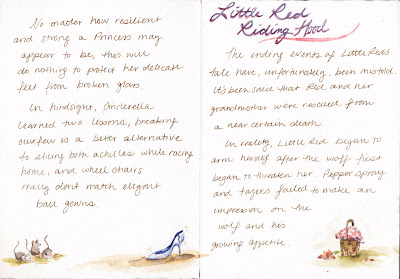 No matter how resilient
and strong a Princess may
appear to be, this will
do nothing to protect her delicate
feet from broken glass.
In hindsight, Cinderella
learned two lessons; breaking
curfew is a better alternative
to slicing both achilles while racing
home, and wheel chairs
really don't match elegant
ball gowns.
Little Red
Riding Hood
The ending events of Little Red's
tale have, unfortunately, been mistold.
It's been said that Red and her
grandmother were rescued from
a near certain death.
In reality, Little Red began to
arm herself after the wolf first
began to threaten her. Pepper spray
and tazers failed to make an
impression on the
wolf and his
growing appetite.